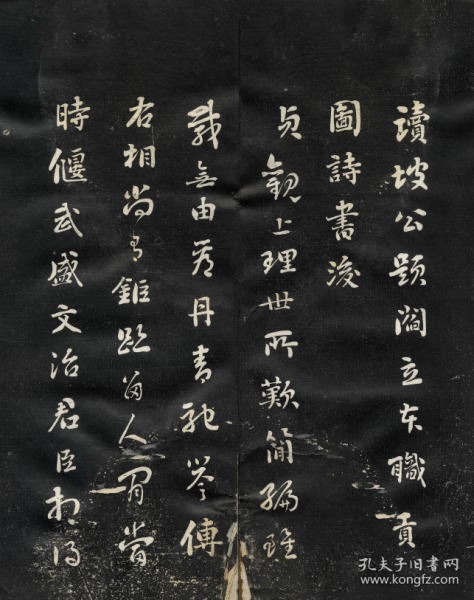 讀坡公題閻立本職貢
圖詩書後
貞觀上理世所歎簡編雖
載無由看丹青馳譽傳
右相尚留鉅跡留人間當
時偃武盛文治君臣相得
孔夫子旧书网
www.kongfz.com